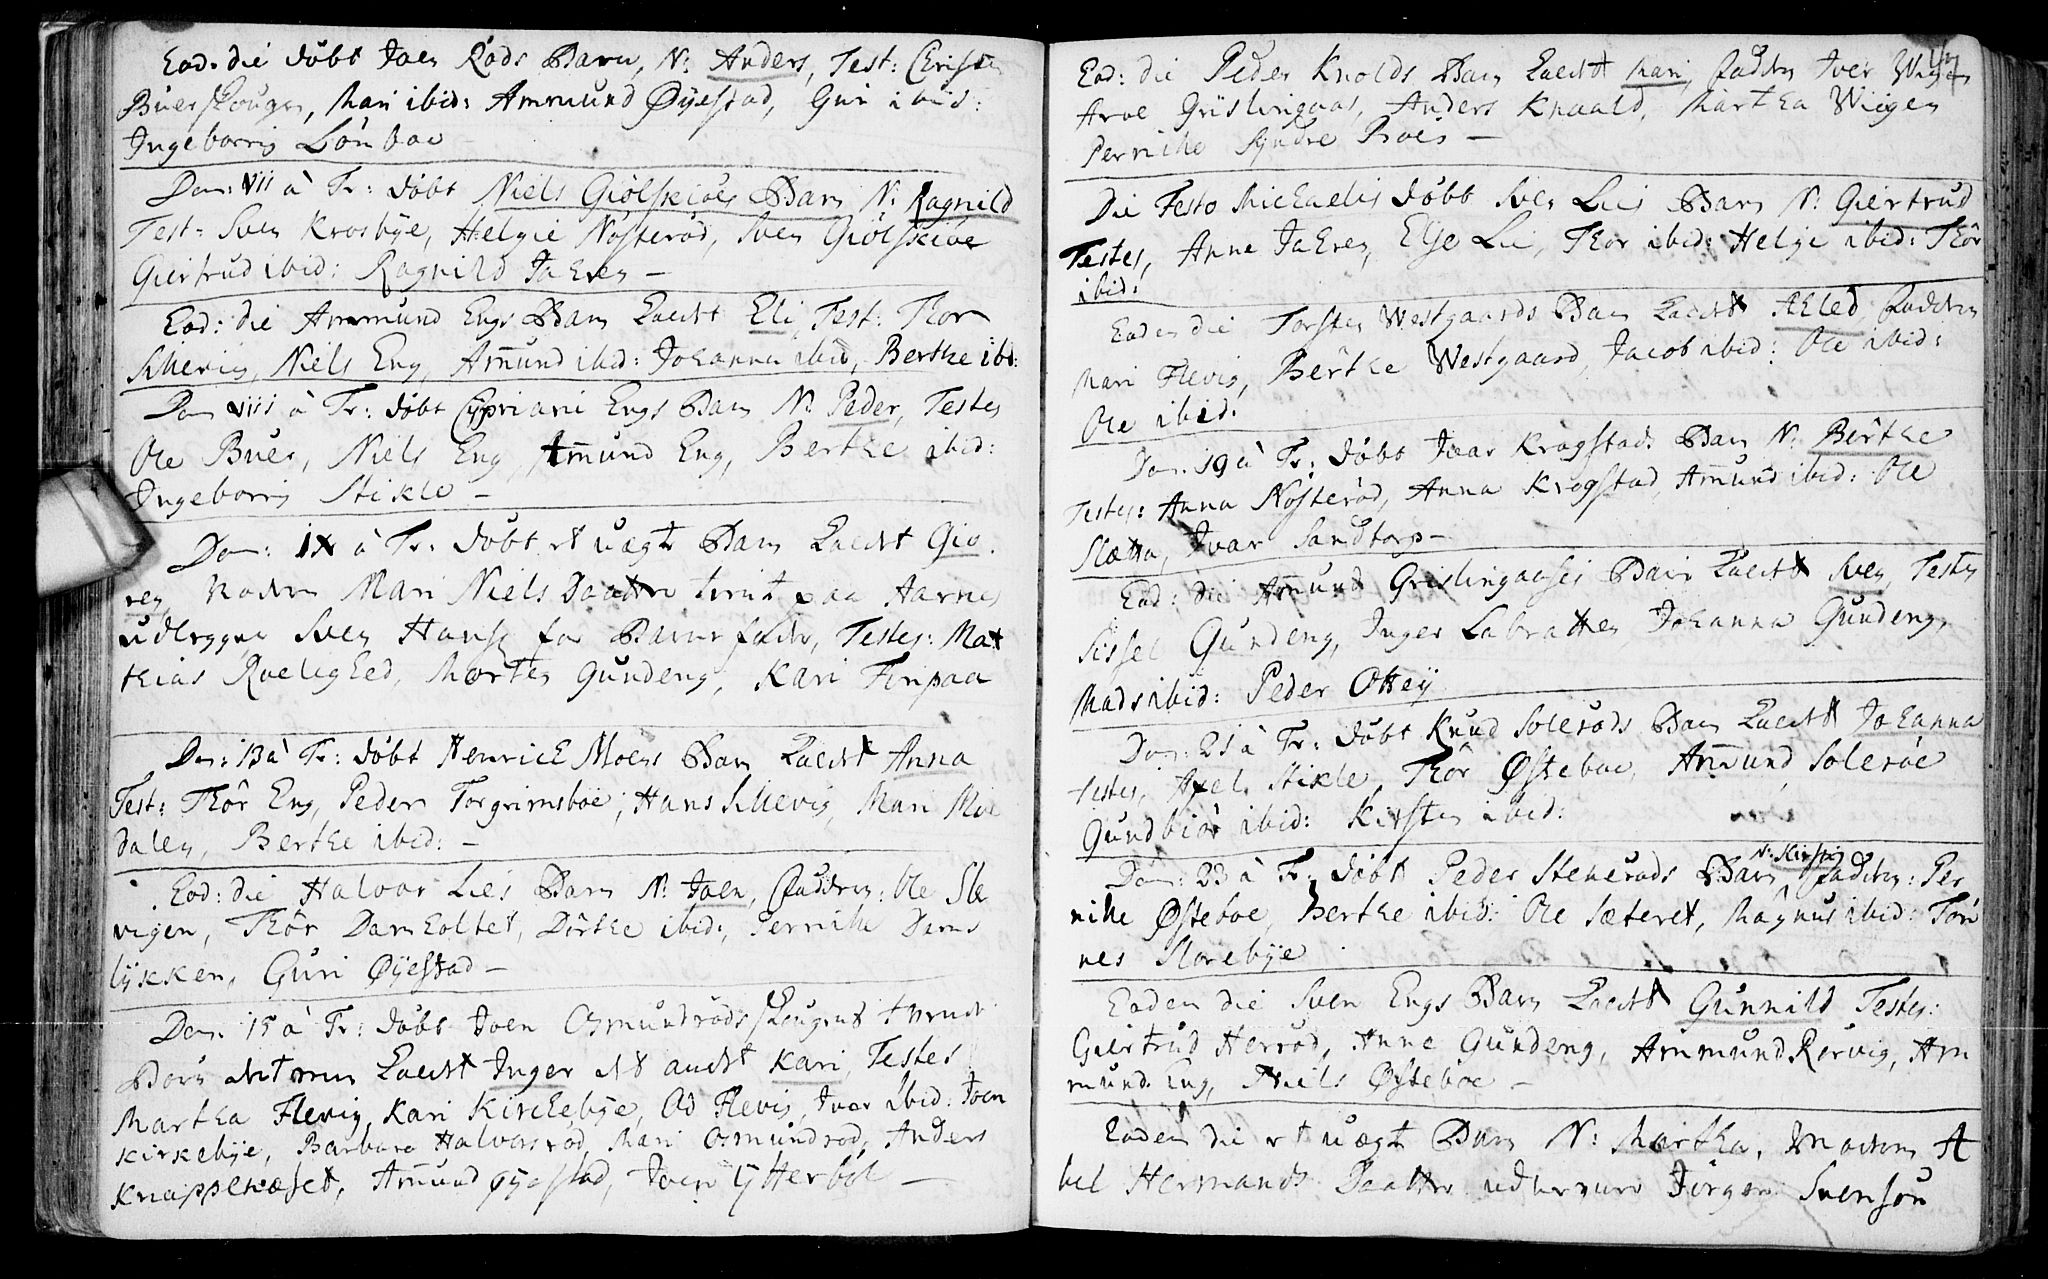 Eod: die døbt Joen Røds Barn, N: Anders, Test: Christen
Buerskougen, Mari ibid: Ammund Øÿestad, Guri ibid:
Ingeborrig Lönboe
Dom: VII à Tr: døbt Niels Giölskioes Barn N: Ragnild
Test: Sven Krosbÿe, Helgie Nösteröd, Sven Giölskioe
Giertrud ibid: Ragnild Jahren —
Eod: die Ammund Engs Barn kaldet Eli, Test: Thor
Schevig, Niels Eng, Am̄und ibid: Johanna ibid, Berthe ibd:
Dom VIII à Tr: døbt Cÿpriani Engs Barn N: Peder, Testes
Ole Buer, Niels Eng, Am̄und Eng, Berthe ibid:
Ingeborrig Stikle —
Dom: IX à Tr: døbt et uægte Barn kaldet Giø-
ren, Moderen Mari Niels Daatter tient paa Aarnes
udlegger Sven Hans for Barnefader, Testes: Mat
thias Roelighed, Morten Gundeng, Kari Finpaa
Dom: 13 à Tr: døbt Henrick Moens Barn kaldet Anna
Test: Thör Eng, Peder Torgrimsboe, Hans Schevig, Mari Moe
dalen, Berthe ibid: —
Eod: die Halvor Lies Barn N: Joen, Faddere: Ole Sle
vigen, Thör Damholtet, Dörthe ibid:, Pernille Dam
lÿkken, Guri Øÿestad —
Dom: 15 à Tr: døbt Joen Osmundröds skougens tvende
Börn det ene kaldet Inger det andet Kari, Testes
Martha Flevig, Kari Kirckebÿe, Od Flevig, Ivar ibid: Joen
Kirkebÿe, Barbara Halvorsröd, Mari Osmundröd, Anders
Knappenæset, Am̄und Øÿestad, Joen Ÿtterböl —
Eod: die Peder Knolds Barn kaldet Mari, Faddere Iver Wigen
Arve Grislingaas, Anders Knaald, Martha Wiigen
Pernille Syndre Roeis —
Die Festo Michaelis døbt Sven Lies Barn N: Giertrud
Testes, Anne Jahren, Else Lie, Thor ibid: Helge ibid: Thör
ibid:
Eodem die Torsten Westgaards Barn kaldet Ahled Faddere
Mari Flevig, Berthe Westgaard, Jacob ibid: Ole ibid:
Ole ibid:
Dom: 19 à Tr: døbt Ivar Krogstads Barn N: Berthe
Testes: Anna Nösteröd, Anna Krogstad, Am̄und ibid: Ole
Slætta, Ivar Sandtorp —
Eod: die Am̄und Grislingaases Barn kaldet Sven Testes
Sissel Gundeng, Inger Labratten, Johanna Gundeng,
Mads ibid: Peder Otteÿ
Dom: 21 à Tr: døbt Knud Soleröds Barn kaldet Johanna
Testes, Axel Stikle, Thör Østeboe, Am̄und Soleröe
Gundbiör ibid: Kirsten ibid:
Dom: 23 à Tr: døbt Peder Steneröds Barn N: Kirsti Faddere: Per
nille Østeboe, Berthe ibid: Ole Sæteret, Magnus ibid: Tön
nes Slorebÿe
Eodem die Sven Engs Barn kaldet Gunnild Testes:
Giertrud Herröd, Anne Gundeng, Ammund Rörvig, Am
mund Eng, Niels Østeboe —
Eodem die et uægte Barn N: Martha, Moderen A
bel Hermands Daatter udlegger Jörgen Svensön